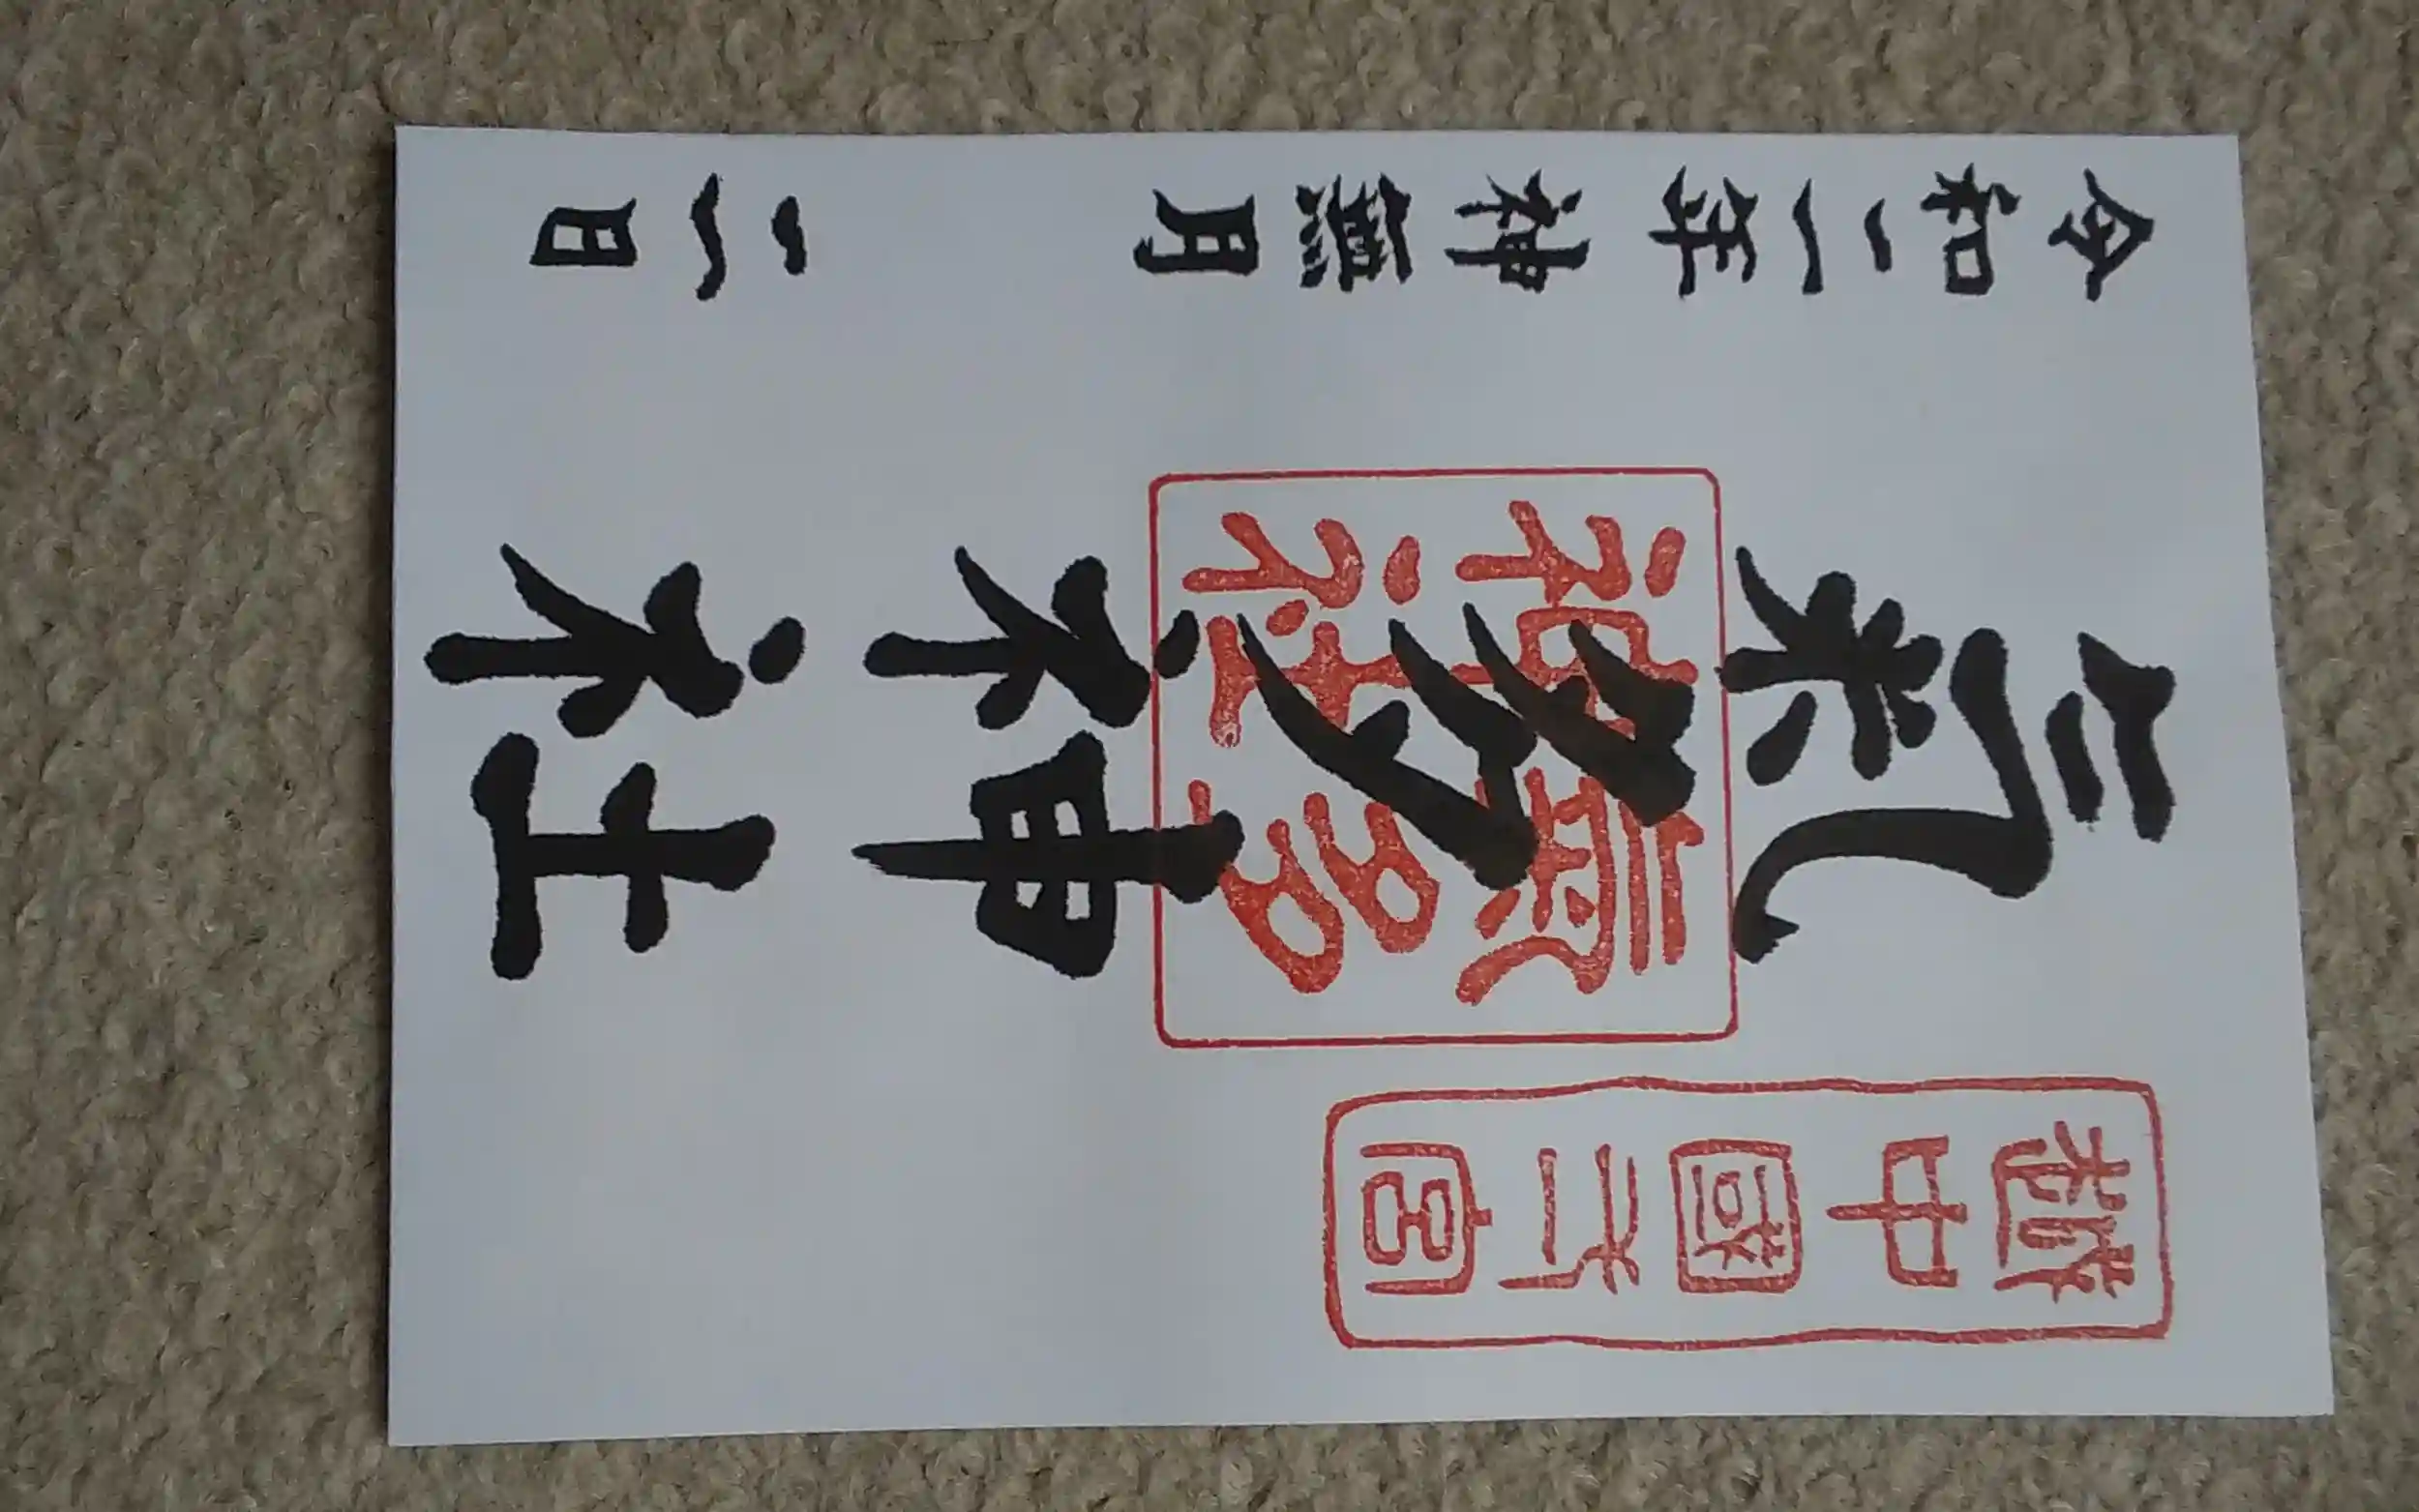 越中國弌宮
氣多神社
氣多
神社
令和二年神無月 二日